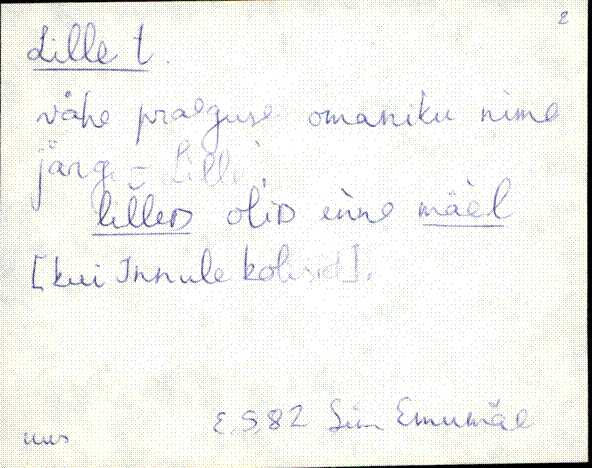 2
Lille t.
vähe praeguse omaniku nime
järgi – Lille.
lilleD oliD enne mäel
[kui Innule kolisid].
E.S.82 Siim Emumäe
uus